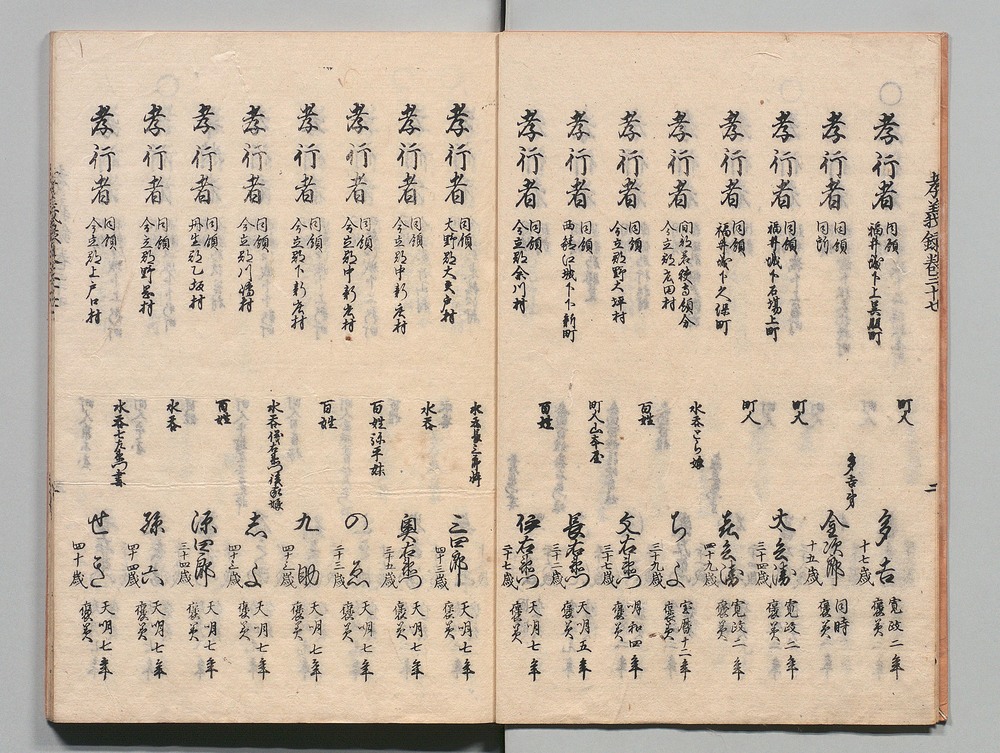 孝義録巻三十七
孝行者 同領 福井城下上呉服町 町人 多吉 十七歳 寛政二年 褒美
孝行者 同領 同所 多吉弟 金次郎 十五歳 同時 褒美
孝行者 同領 福井城下石場上町 町人 三十四歳 寛政二年 褒美
孝行者 同領 福井城下久保町 町人 四十九歳 寛政二年 褒美
孝行者 今立郡庄田村 水呑 ちよ 三十九歳 宝暦十二年 褒美
孝行者 同領 今立郡野大坪村 百姓 文右衛門 三十七歳 明和四年 褒美
孝行者 同領 西鯖江城下下新町 町人山本屋 長右衛門 三十二歳 天明五年 褒美
孝行者 同領 今立郡余川村 百姓 伝右衛門 三十七歳 天明七年 褒美
孝行者 同領 大野郡大矢戸村 三四郎 四十三歳 天明七年 褒美
孝行者 同領 今立郡中新庄村 水呑 奥右衛門 三十五歳 天明七年 褒美
孝行者 同領 今立郡中新庄村 百姓源平妹 のゑ 三十三歳 天明七年 褒美
孝行者 同領 今立郡下新庄村 百姓 九助 四十三歳 天明七年 褒美
孝行者 同領 今立郡川嶋村 水呑 天明七年 褒美
孝行者 同領 丹生郡乙坂村 百姓 源四郎 三十四歳 天明七年 褒美
孝行者 同領 今立郡野岡村 水呑 孫六 四十四歳 天明七年 褒美
孝行者 同領 今立郡上戸口村 水呑七左衛門妻 四十歳 天明七年 褒美